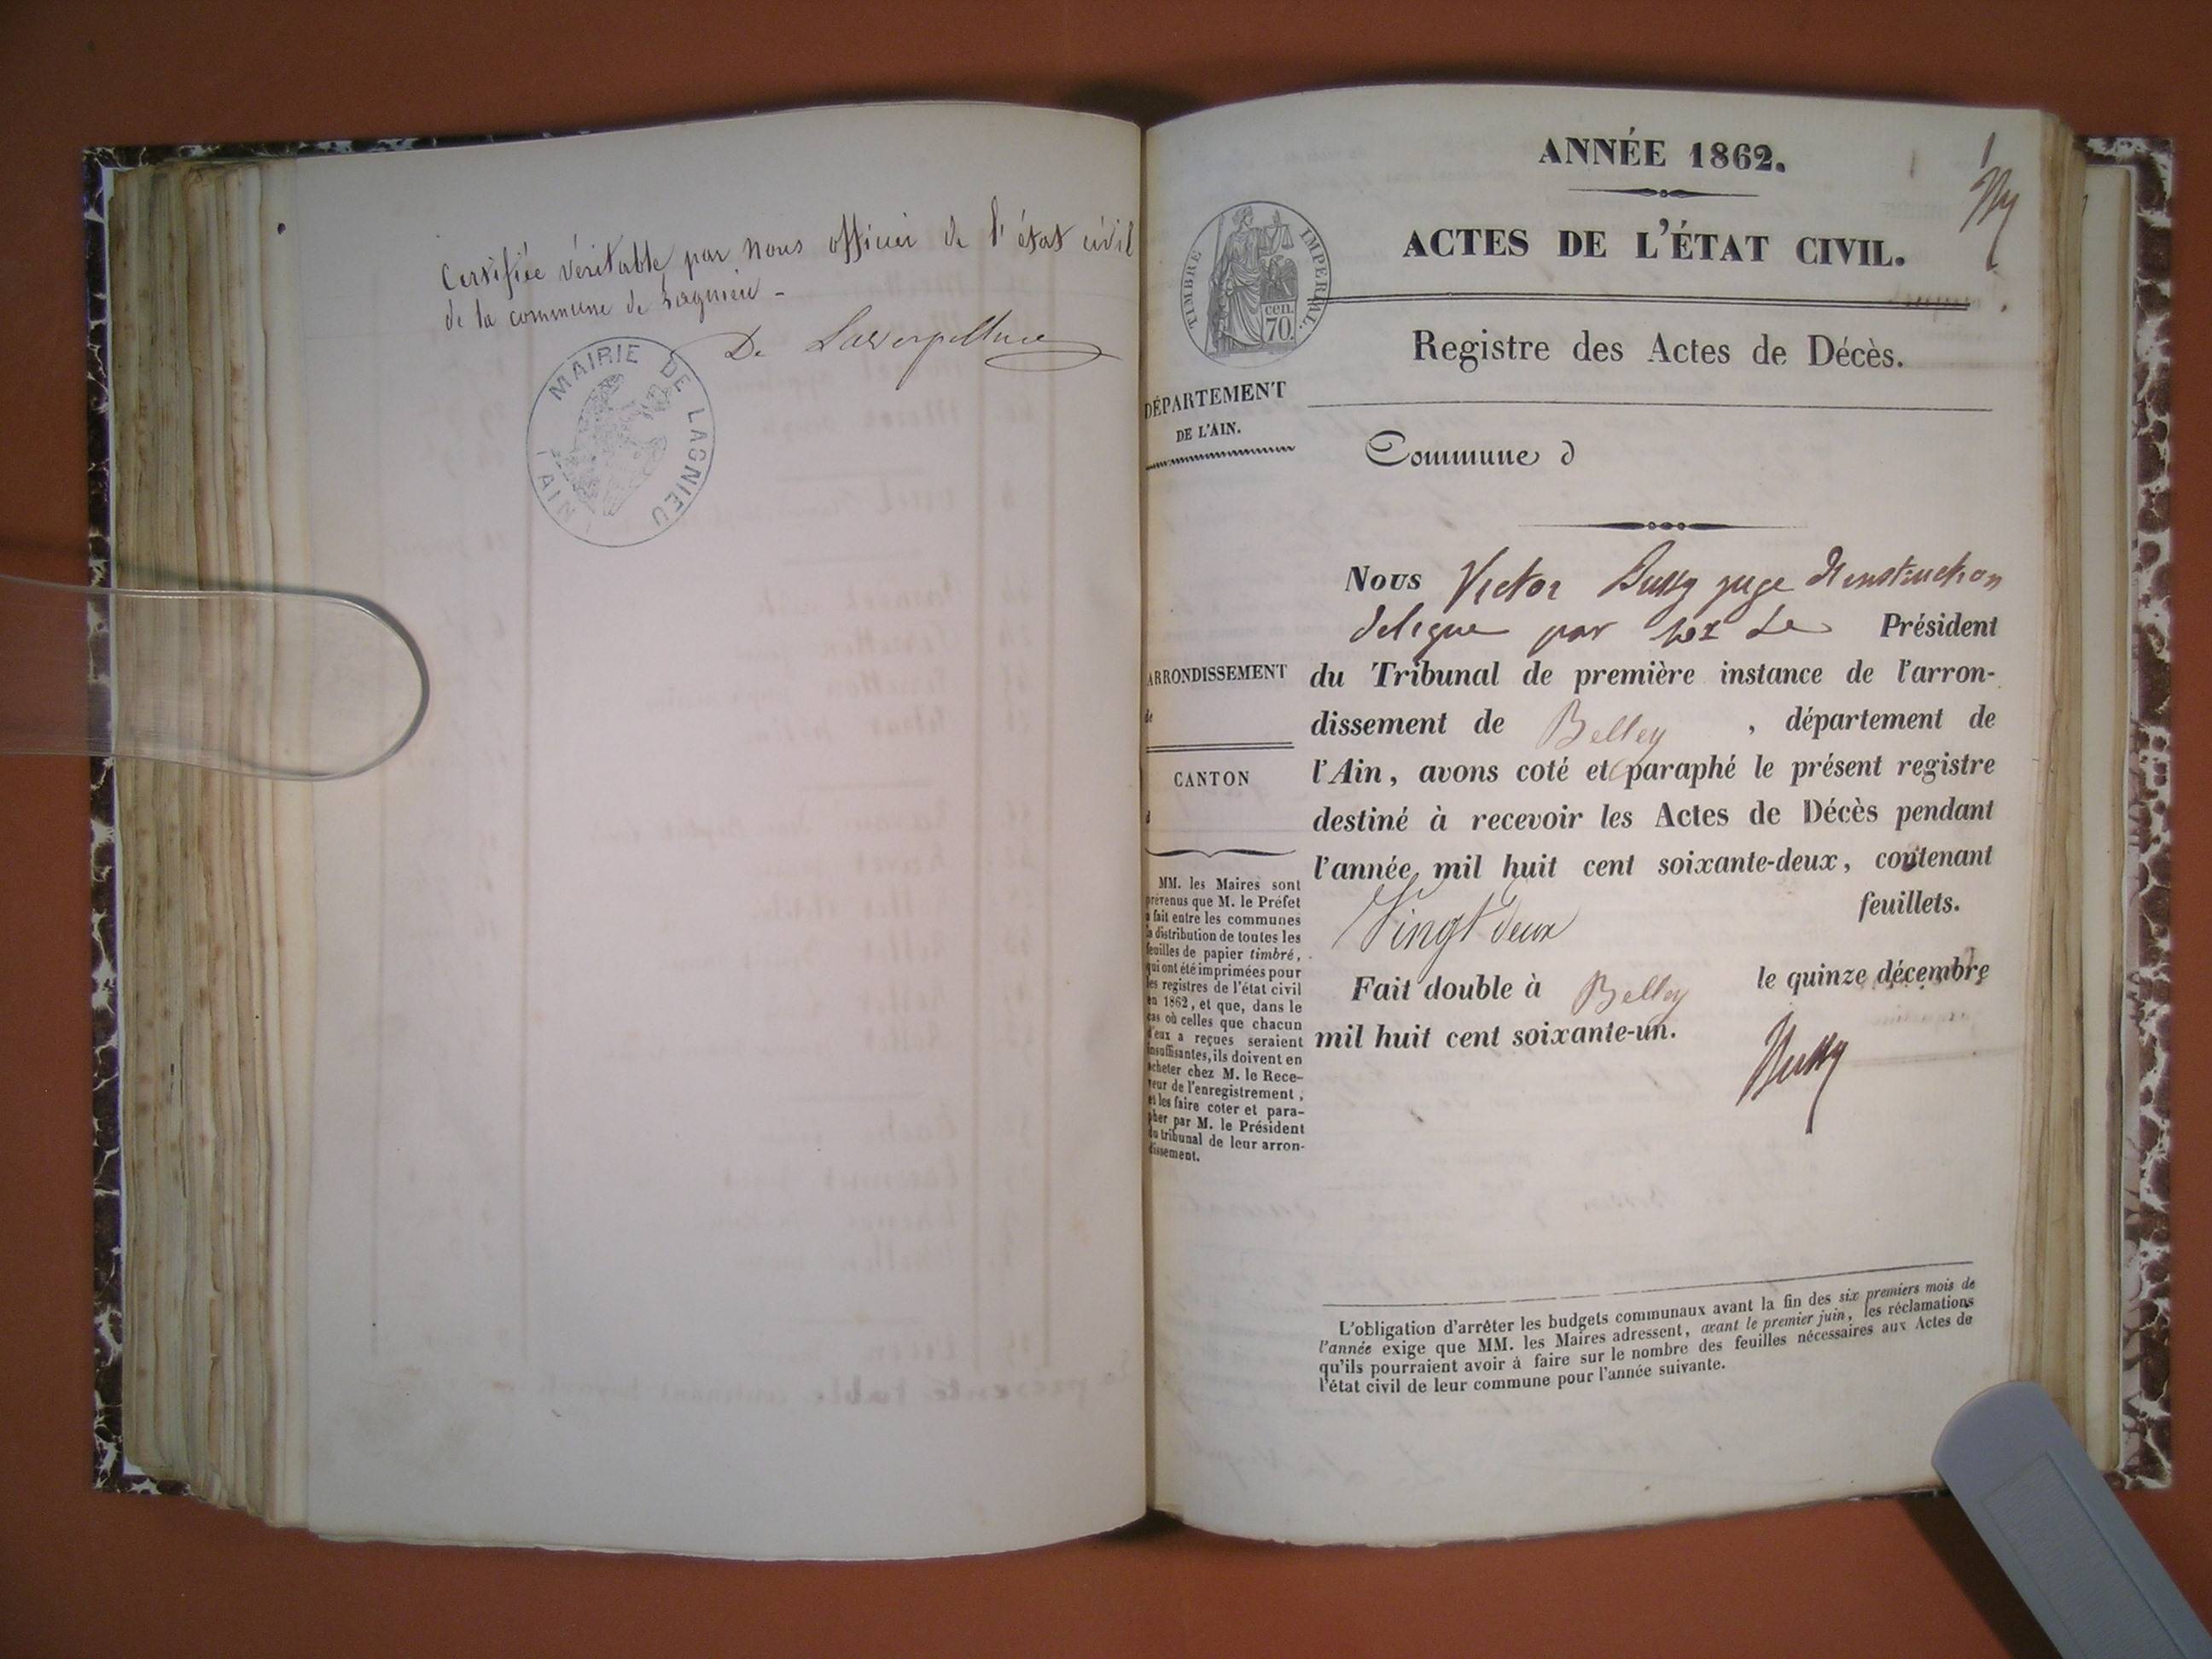 Certifiée véritable par nous officier de l'état civil
de la commune de Lagnieu -
De Laverpillière
MAIRIE DE LAGNIEU
(AIN)
ANNÉE 1862.
ACTES DE L'ÉTAT CIVIL.
TIMBRE IMPERIAL.
cen.
70.
Registre des Actes de Décès.
DÉPARTEMENT
DE L'AIN.
Commune d
Nous Victor Bussy juge d'instruction
délégué par Mr Le Président
du Tribunal de première instance de l'arron-
dissement de Belley, département de
l'Ain, avons coté et paraphé le présent registre
destiné à recevoir les Actes de Décès pendant
l'année mil huit cent soixante-deux, contenant
Vingt deux feuillets.
Fait double à Belley le quinze décembre
mil huit cent soixante-un.
Bussy
ARRONDISSEMENT
de
CANTON
d
MM. les Maires sont
prévenus que M. le Préfet
a fait entre les communes
la distribution de toutes les
feuilles de papier timbré,
qui ont été imprimées pour
les registres de l'état civil
en 1862, et que, dans le
cas où celles que chacun
d'eux a reçues seraient
insuffisantes, ils doivent en
acheter chez M. le Rece-
veur de l'enregistrement,
et les faire coter et para-
pher par M. le Président
du tribunal de leur arron-
dissement.
L'obligation d'arrêter les budgets communaux avant la fin des six premiers mois de
l'année exige que MM. les Maires adressent, avant le premier juin, les réclamations
qu'ils pourraient avoir à faire sur le nombre des feuilles nécessaires aux Actes de
l'état civil de leur commune pour l'année suivante.